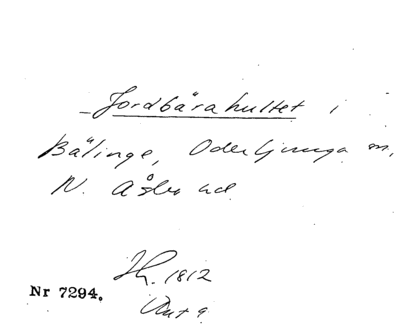 Jordbärahultet i
Bälinge, Oderljunga sn,
N. Åsbo hd
Nr 7294.
1812
Akt 9